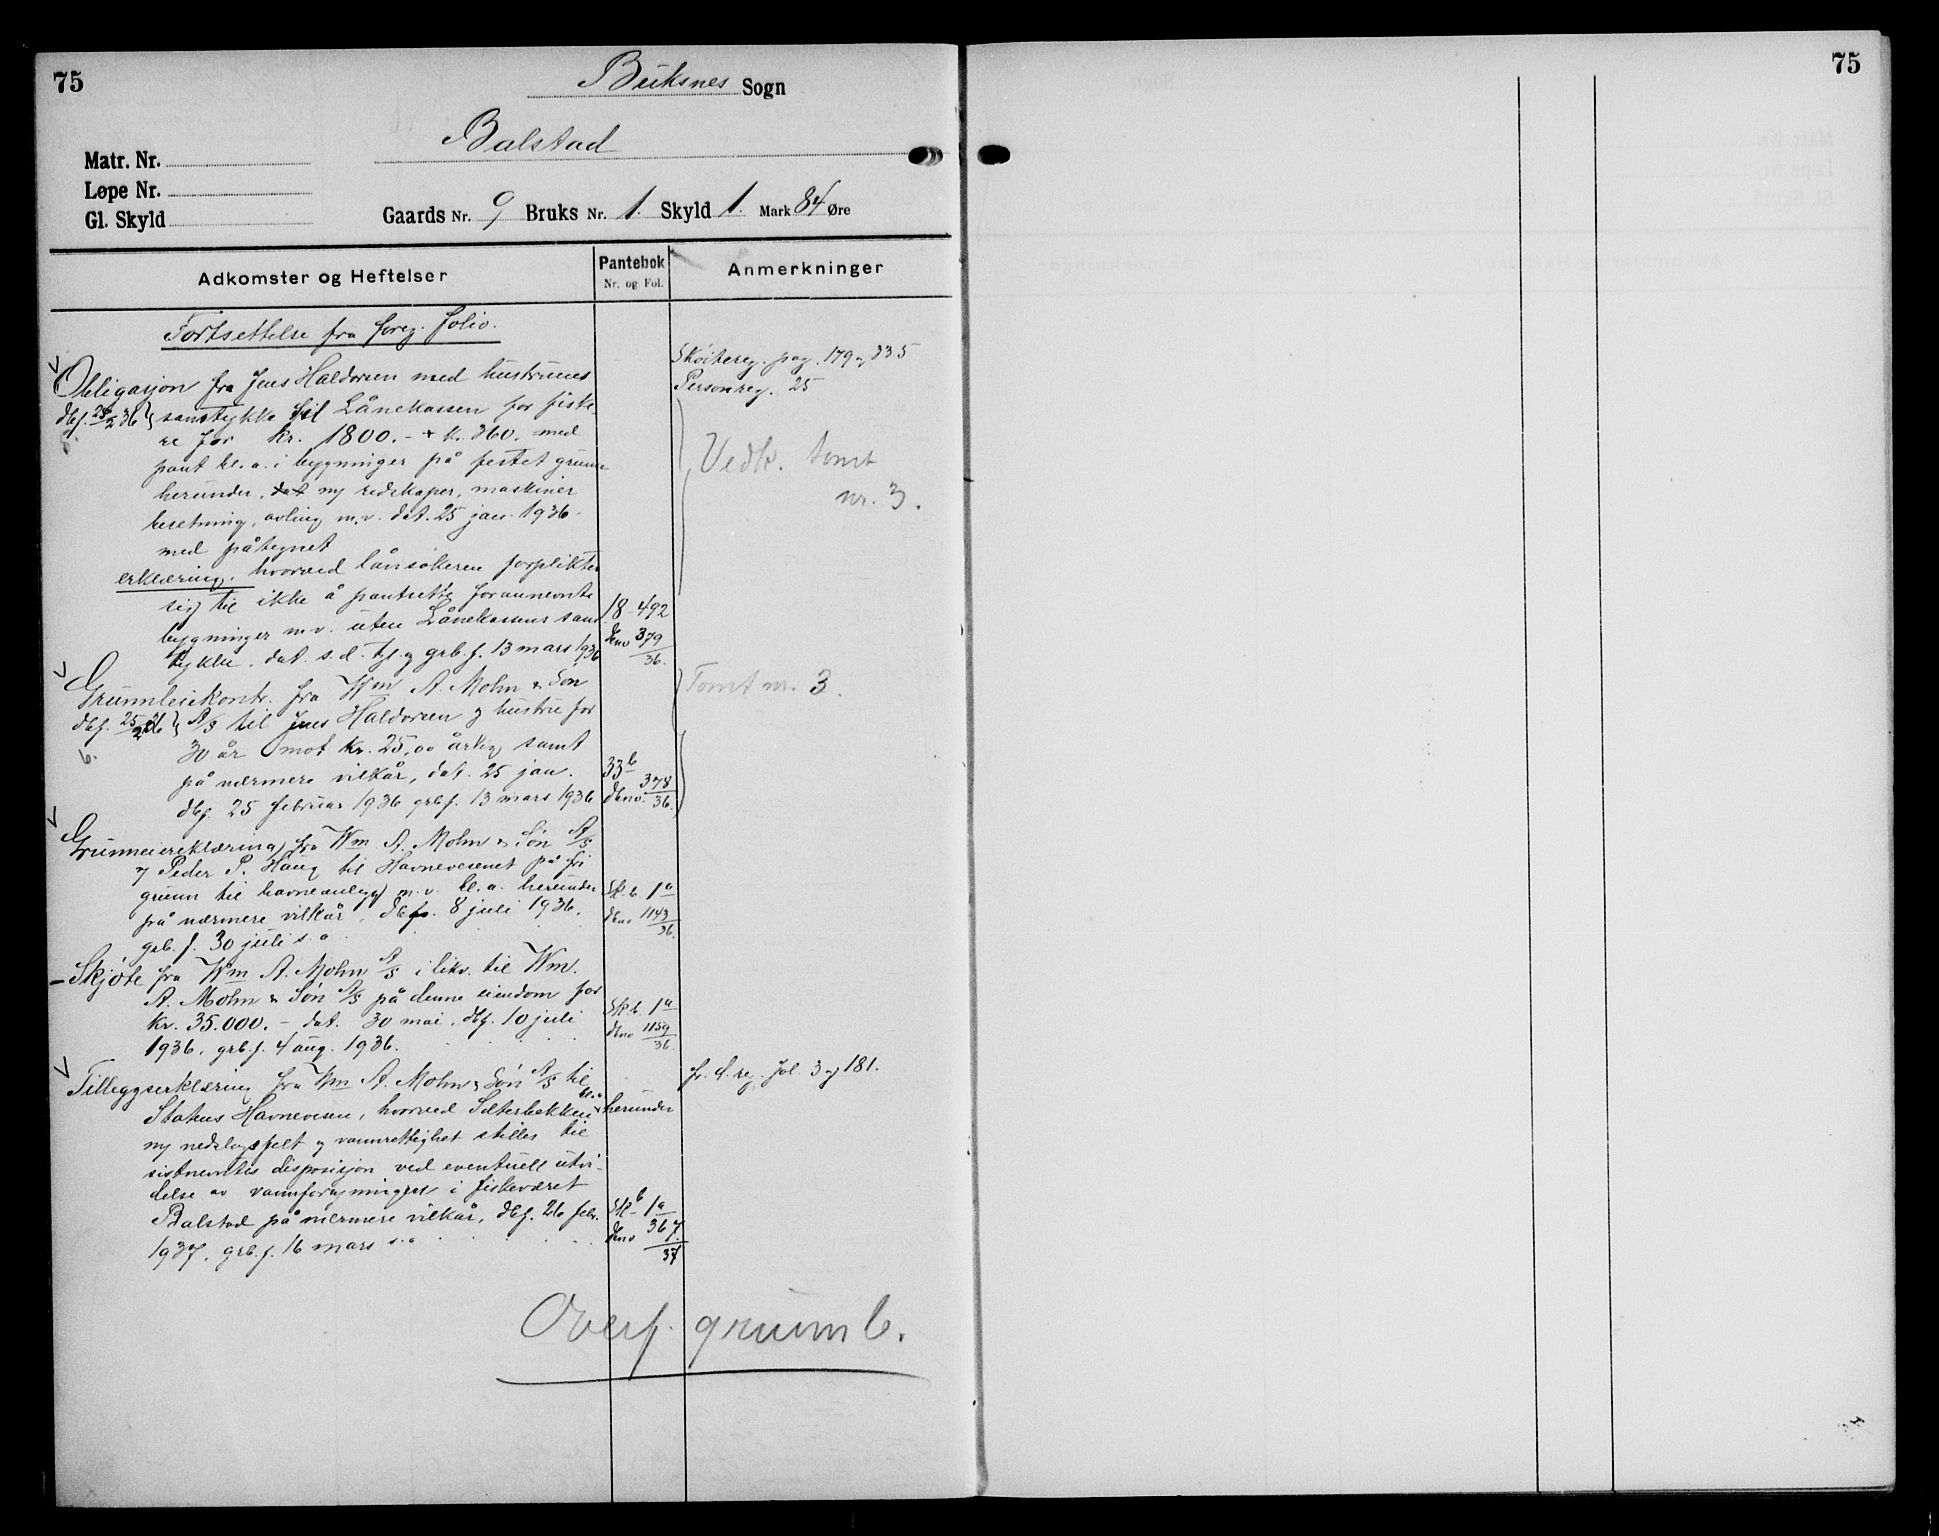 75
Buksnes Sogn
Balstad
Matr. Nr.
Løpe Nr.
Gl. Skyld
Gaards Nr. 9 Bruks Nr. 1. Skyld 1. Mark 84 Øre
Adkomster og Heftelser
Pantebok
Nr. og Fol.
Anmerkninger
Fortsettelse fra foreg. folio.
Skjötereg. pag. 179 og 335
Personreg. 25
Obligasjon fra Jens Haldorsen med hustrues
dbf. 25/2 36 samtykke til Lånekassen for fiske-
re for kr. 1800.- + kr. 360. med
pant bl. a. i bygninger på festet grunn
herunder, dat ny redskaper, maskiner
besetning, avling m.v. dat. 25 jan. 1936.
med påtegnet
erklæring, hvorved lånsökeren forplikter
sig til ikke å pantsette forannevnte
bygninger m.v. uten Lånekassens sam-
tykke. dat. s.d. tgl. og grb.f. 13 mars 1936
18-492
dbno 379/36.
Vedk. tomt
nr. 3.
Grunnleiekontr. fra Wm A. Mohn & Søn
dbf. 25/2 36 A/S til Jens Haldorsen og hustru for
30 år mot kr. 25,00 årlig samt
på nærmere vilkår, dat. 25 jan.
dbf. 25 februar 1936 grb.f. 13 mars 1936
6.
33b
dbno. 378/36.
Tomt nr. 3.
Grunneiererklæring fra Wm A. Mohn & Søn A/S
og Peder P. Haug til Havnevesenet på fri
grunn til havneanlegg m.v. bl.a. herunder
på nærmere vilkår. dbf. 8 juli 1936,
grb.f. 30 juli s.a.
Sk.b. 1a
dbno 1143/36.
- Skjøte fra Wm A. Mohn A/S i likv. til Wm.
A. Mohn & Søn A/S på denne eiendom for
kr. 35.000.- dat. 30 mai, dbf. 10 juli
1936, grb.f. 4 aug. 1936.
Sk.b. 1a
dbno 1159/36.
Tilleggserklæring fra Wm A. Mohn & Søn A/S til
Statens Havnevesen, hvorved Sæterbekken bl.a. herunder
og nedslagsfelt og vannrettighet stilles til
sistnevntes disposisjon ved eventuell utvi-
delse av vannforsyningen i fiskeværet
Balstad på nærmere vilkår, dbf. 26 febr.
1937, grb.f. 16 mars s.a.
Sk.b 1a
dbno 367/37
fr. d. reg. fol. 3 og 181.
Overf. grunnb.
75